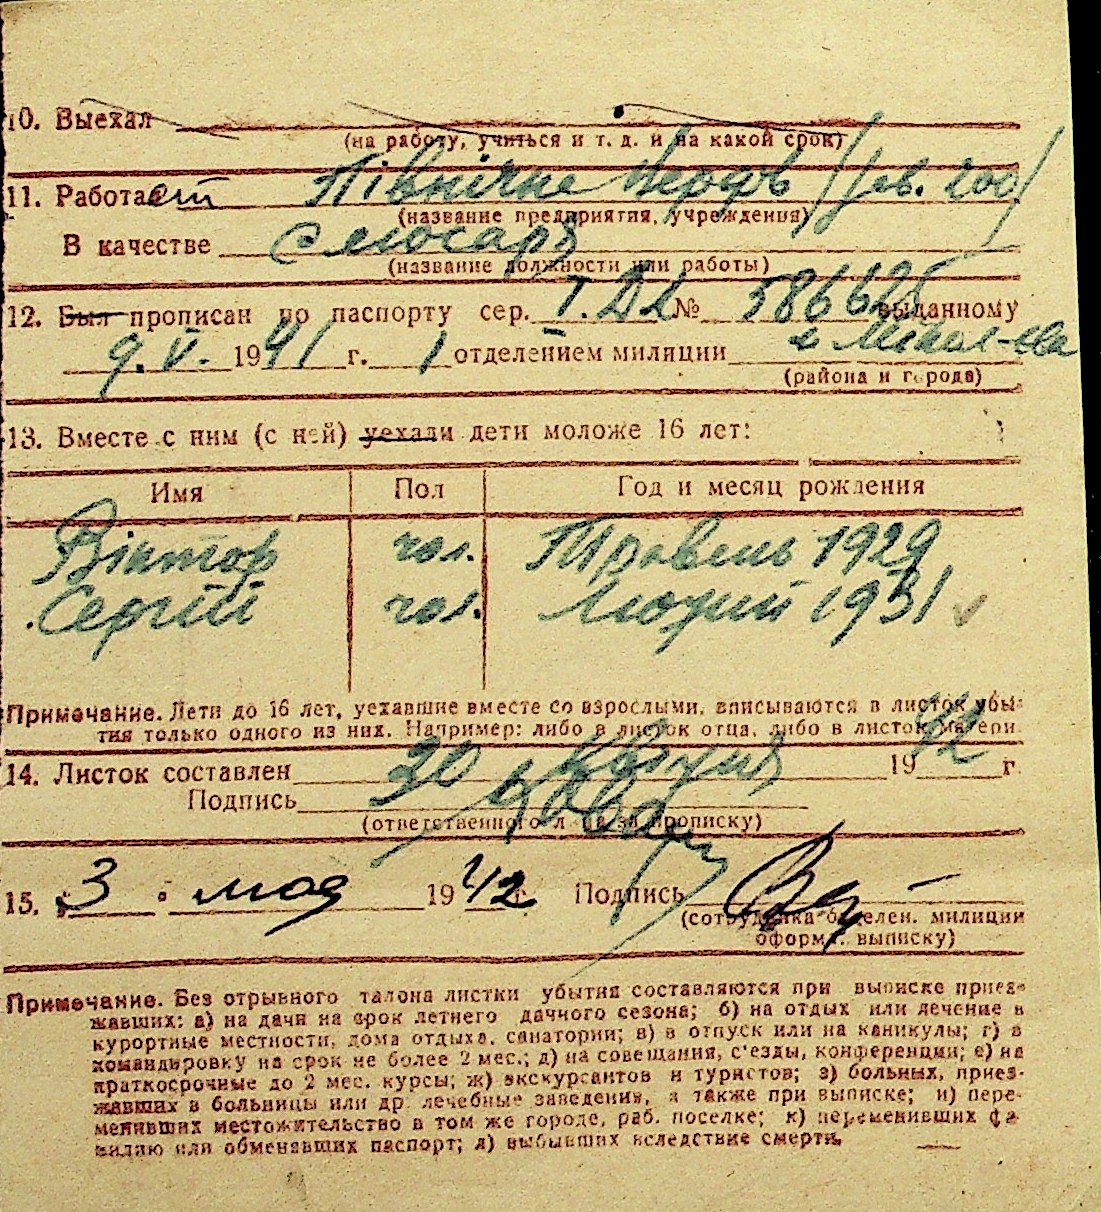 10. Выехал
(на работу, учиться и т. д. и на какой срок)
11. Работает Північне верфь
(название предприятия, учреждения)
В качестве слюсаря
(название должности или работы)
12. Был прописан по паспорту сер. № 586625 выданному
9. V. 1941 г. 1 отделением милиции
(района и города)
13. Вместе с ним (с ней) уехали дети моложе 16 лет:
Имя Пол Год и месяц рождения
Віктор чол. Травень 1929
Сергій чол. Лютий 1931
Примечание. Дети до 16 лет, уехавшие вместе со взрослыми, вписываются в листок убы-
тия только одного из них. Например: либо в листок отца, либо в листок матери
14. Листок составлен 20 1942 г.
Подпись
(ответственного л на за прописку)
15. 3 мая 1942 г. Подпись
(сотрудника отделен. милиции
оформ. выписку)
Примечание. Без отрывного талона листки убытия составляются при выписке приез-
жавших: а) на дачи на срок летнего дачного сезона; б) на отдых или лечение в
курортные местности, дома отдыха, санатории; в) в отпуск или на каникулы; г) в
командировку на срок не более 2 мес.; д) на совещания, с'езды, конференции; е) на
краткосрочные до 2 мес. курсы; ж) экскурсантов и туристов; з) больных, приез-
жавших в больницы или др. лечебные заведения, а также при выписке; и) пере-
менивших местожительство в том же городе, раб. поселке; к) переменивших фа-
милию или обменявших паспорт; л) выбывших вследствие смерти.